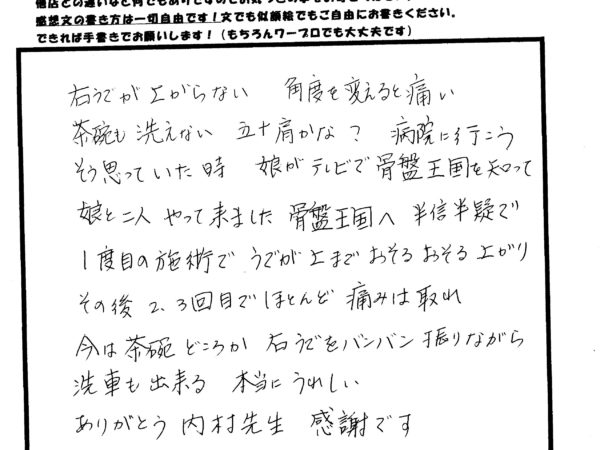 感想文の書き方は一切自由です!文でも似顔絵でもご自由にお書きください。
できれば手書きでお願いします!(もちろんワープロでも大丈夫です)
右うでが上がらない 角度を変えると痛い
茶碗も洗えない 五十肩かな? 病院に行こう
そう思っていた時 娘がテレビで骨盤王国を知って
娘と二人やって来ました 骨盤王国へ 半信半疑で
1度目の施術で うでが上まで おそるおそる上がり
その後 2、3回目でほとんど 痛みは取れ
今は茶碗どころか 右うでをバンバン振りながら
洗車も出来る 本当にうれしい
ありがとう 内村先生 感謝です